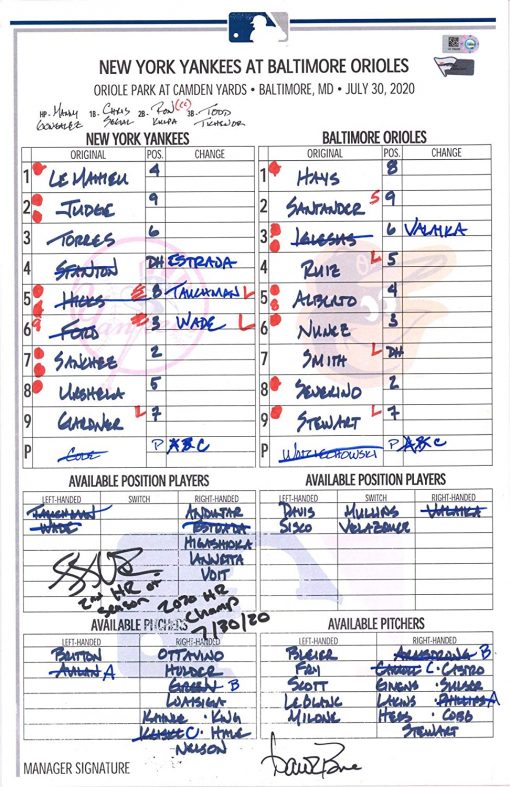 NEW YORK YANKEES AT BALTIMORE ORIOLES
ORIOLE PARK AT CAMDEN YARDS • BALTIMORE, MD • JULY 30, 2020
HP- MANNY GONZALEZ 1B- CHRIS SEGAL 2B- RON (CC) KULPA 3B- TODD TICHENOR
NEW YORK YANKEES BALTIMORE ORIOLES
ORIGINAL POS. CHANGE ORIGINAL POS. CHANGE
1 LEMAHIEU 4 1 HAYS 8
2 JUDGE 9 2 SANTANDER S 9
3 TORRES 6 3 IGLESIAS 6 VALAIKA
4 STANTON DH ESTRADA 4 RUIZ L 5
5 HICKS S 8 TAUCHMAN L 5 ALBERTO 4
6 FORD 3 WADE L 6 NUNEZ 3
7 SANCHEZ 2 7 SMITH L DH
8 URSHELA 5 8 SEVERINO 2
9 GARDNER L 7 9 STEWART L 7
P COLE P A B C P WOJCIECHOWSKI P A B C
AVAILABLE POSITION PLAYERS AVAILABLE POSITION PLAYERS
LEFT-HANDED SWITCH RIGHT-HANDED LEFT-HANDED SWITCH RIGHT-HANDED
TAUCHMAN ANDUJAR DAVIS MULLINS VALAIKA
WADE ESTRADA SISCO VELAZQUEZ
HIGASHIOKA
IANNETTA
VOIT
2nd HR of season
2020 HR Champ
7/30/20
AVAILABLE PITCHERS AVAILABLE PITCHERS
LEFT-HANDED RIGHT-HANDED LEFT-HANDED RIGHT-HANDED
BRITTON OTTAVINO BLEIER ARMSTRONG B
AVILAN A HOLDER FRY CARROLL C · CASTRO
GREEN B SCOTT GIVENS · SULSER
LOAISIGA LEBLANC LAKINS · PHILLIPS A
KAHNLE · KING MILONE HESS · COBB
C · HALE STEWART
NELSON
MANAGER SIGNATURE